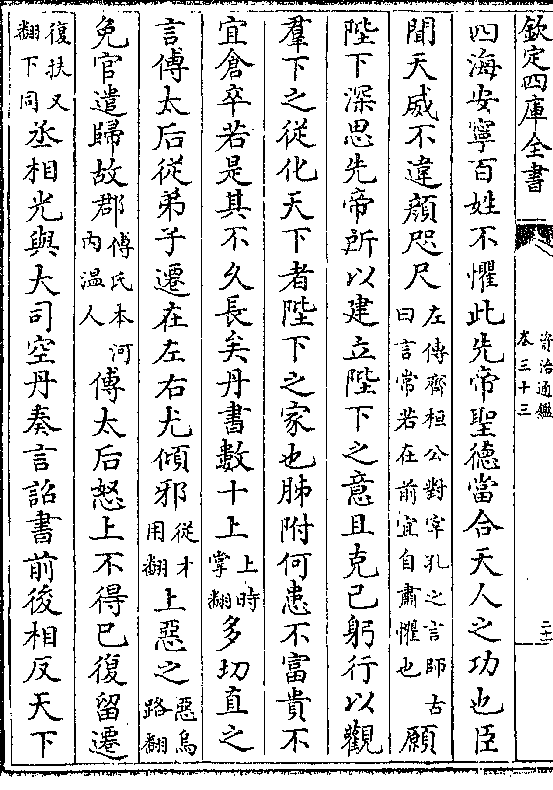 欽定四庫全書
資治通鑑
卷三十三
四海安寧百姓不懼此先帝聖德當合天人之功也臣
聞天威不違顔咫尺左傳齊桓公對宰孔之言師古曰言常若在前宜自肅懼也願
陛下深思先帝所以建立陛下之意且克己躬行以觀
羣下之從化天下者陛下之家也肺附何患不富貴不
宜倉卒若是其不久長矣丹書數十上上時掌翻多切直之
言傅太后從弟子遷在左右尤傾邪從才用翻上惡之惡烏路翻
免官遣歸故郡傅氏本河內温人傅太后怒上不得已復留遷
復扶又翻下同丞相光與大司空丹奏言詔書前後相反天下